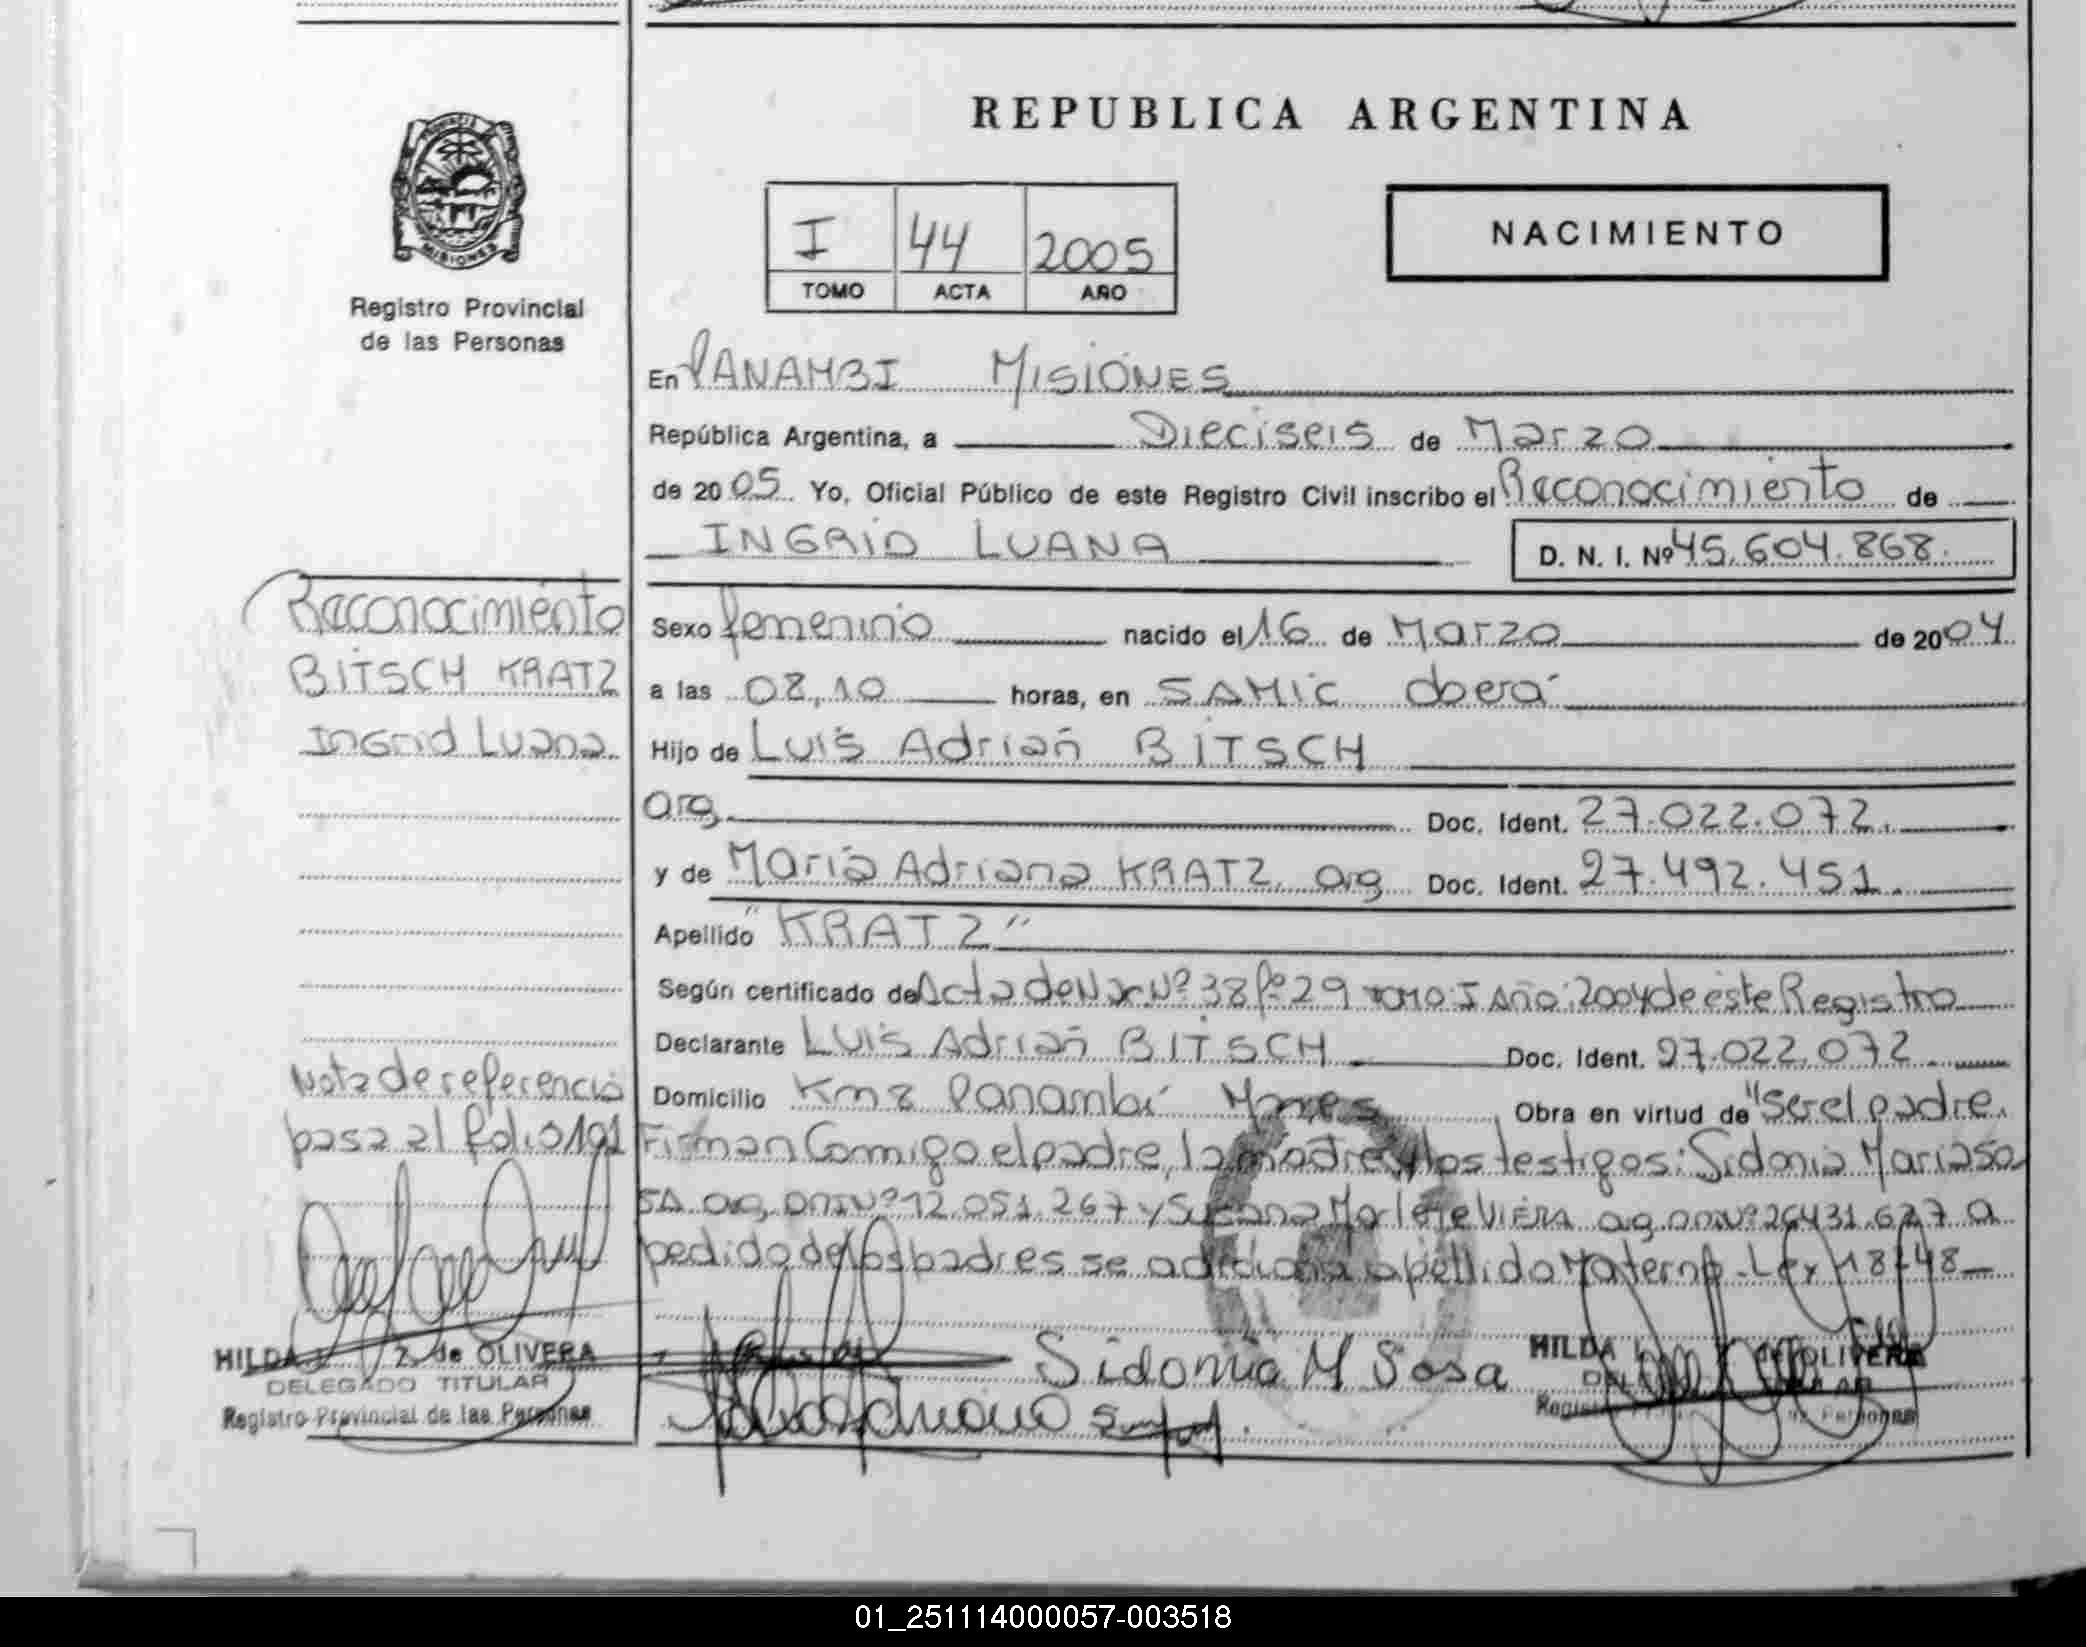 REPUBLICA ARGENTINA
PROVINCIA DE
MISIONES
Registro Provincial
de las Personas
I 44 2005
TOMO ACTA AÑO
NACIMIENTO
En PANAMBI MISIONES
República Argentina, a Dieciseis de Marzo
de 2005 Yo, Oficial Público de este Registro Civil inscribo el Reconocimiento de
INGRID LUANA D. N. I. Nº 45.604.868.
Reconocimiento
BITSCH KRATZ
Ingrid Luana
Sexo femenino nacido el 16 de Marzo de 2004
a las 08,10 horas, en SAMIC Oberá
Hijo de Luis Adrian BITSCH
arg. Doc. Ident. 27.022.072.
y de Maria Adriana KRATZ, arg Doc. Ident. 27.492.451.
Apellido "KRATZ"
Según certificado de Acta de Nac Nº 38 Fº 29 TOMO: I Año: 2004 de este Registro
Declarante Luis Adrian BITSCH Doc. Ident. 27.022.072.
Domicilio Km 8 Panambí Mnes Obra en virtud de "Ser el padre.
Firman Conmigo el padre, la madre y los testigos: Sidonia Maria So
SA arg, DNI Nº 12.051.267 y Susana Marlene VIERA arg DNI Nº 26431.627 a
pedido de los padres se adiciona apellido Materno - Ley 18248
Nota de referencia
pasa al folio 191
HILDA Z. de OLIVERA
DELEGADO TITULAR
Registro Provincial de las Personas
Sidonia M Sosa
HILDA OLIVERA
01_251114000057-003518